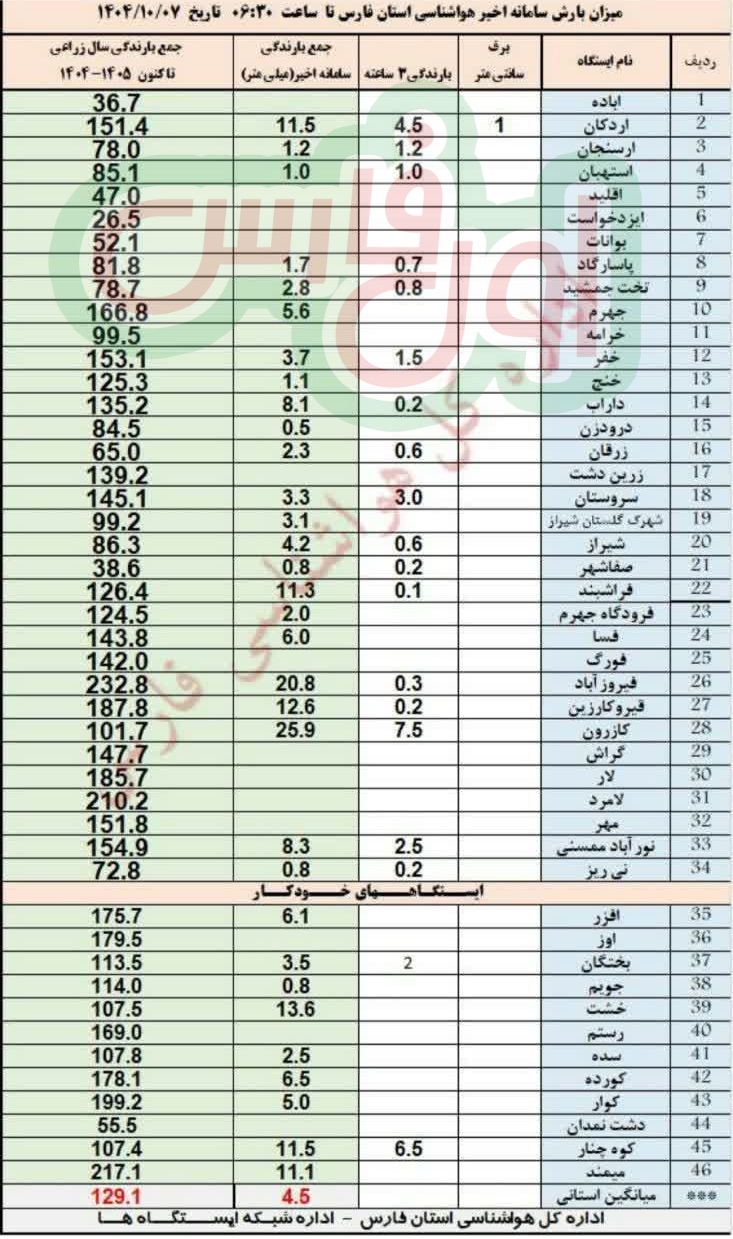 میزان بارش سامانه اخیر هواشناسی استان فارس تا ساعت ۰۶:۳۰ تاریخ ۱۴۰۴/۱۰/۰۷
ردیف نام ایستگاه برف سانتی متر بارندگی ۳ ساعته جمع بارندگی سامانه اخیر(میلی متر) جمع بارندگی سال زراعی ۱۴۰۵-۱۴۰۴ تاکنون
1 اباده 36.7
2 اردکان 1 4.5 11.5 151.4
3 ارسنجان 1.2 1.2 78.0
4 استهبان 1.0 1.0 85.1
5 اقلید 47.0
6 ایزدخواست 26.5
7 بوانات 52.1
8 پاسارگاد 0.7 1.7 81.8
9 تخت جمشید 0.8 2.8 78.7
10 جهرم 5.6 166.8
11 خرامه 99.5
12 خفر 1.5 3.7 153.1
13 خنج 1.1 125.3
14 داراب 0.2 8.1 135.2
15 درودزن 0.5 84.5
16 زرقان 0.6 2.3 65.0
17 زرین دشت 139.2
18 سروستان 3.0 3.3 145.1
19 شهرک گلستان شیراز 3.1 99.2
20 شیراز 0.6 4.2 86.3
21 صفاشهر 0.2 0.8 38.6
22 فراشبند 0.1 11.3 126.4
23 فرودگاه جهرم 2.0 124.5
24 فسا 6.0 143.8
25 فورگ 142.0
26 فیروز آباد 0.3 20.8 232.8
27 قیروکارزین 0.2 12.6 187.8
28 کازرون 7.5 25.9 101.7
29 گراش 147.7
30 لار 185.7
31 لامرد 210.2
32 مهر 151.8
33 نور آباد ممسنی 2.5 8.3 154.9
34 نی ریز 0.2 0.8 72.8
ایستگاههای خودکار
35 افزر 6.1 175.7
36 اوز 179.5
37 بختگان 2 3.5 113.5
38 جویم 0.8 114.0
39 خشت 13.6 107.5
40 رستم 169.0
41 سده 2.5 107.8
42 کورده 6.5 178.1
43 کوار 5.0 199.2
44 دشت نمدان 55.5
45 کوه چنار 6.5 11.5 107.4
46 میمند 11.1 217.1
*** میانگین استانی 4.5 129.1
اداره کل هواشناسی استان فارس - اداره شبکه ایستگاه ها
اداره کل هواشناسی فارس
اول فارس